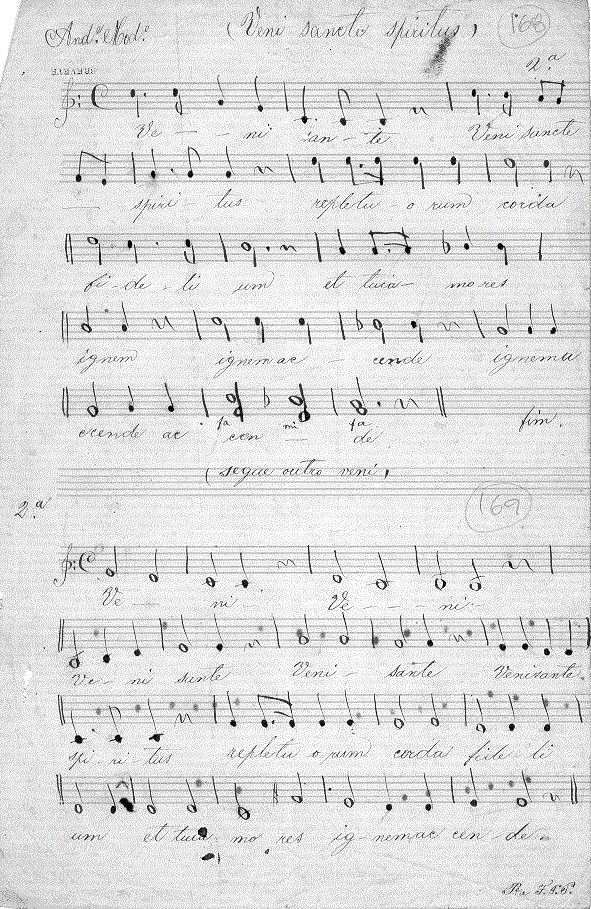 And.e Mod.o (Veni sancto spiritus) 168
2.a
Ve - - ni san - te Veni sancte
spiri - tus repletu - o rum corda
fi - de - li um et tuia - mores
ignem ignem ac - cende ignem a
ccende ac cen - de fim.
fa mi fa
(segue outro veni)
2.a 169
Ve - ni - Ve - - - ni -
Ve - ni sante Veni - sante Veni sante
spi - ri - tus repletu o rum corda fide li
um et tuia mo res ig - nem ac cen - de.